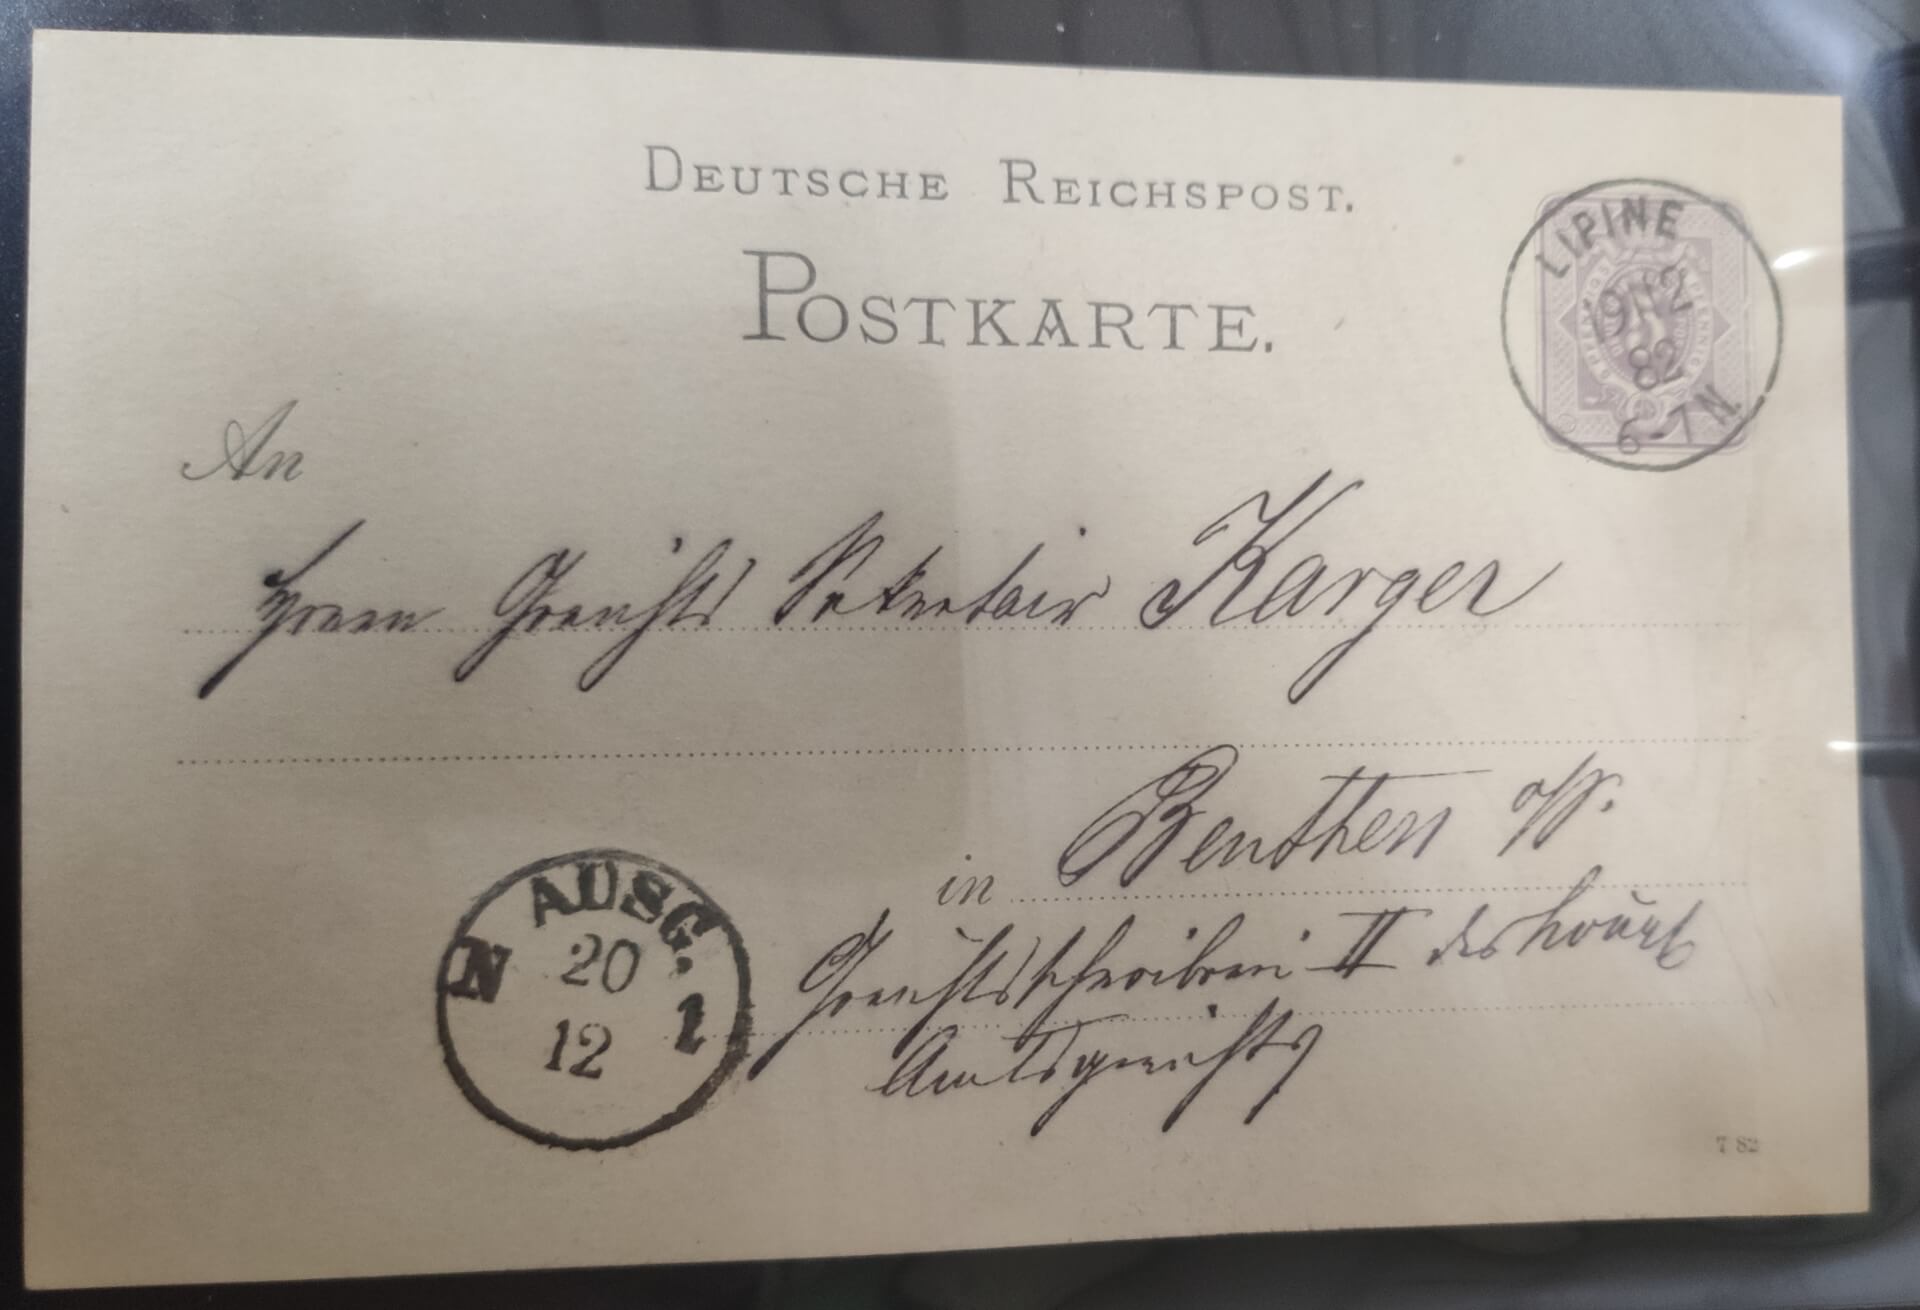 DEUTSCHE REICHSPOST.
POSTKARTE.
LIPINE
19 12
82
6-7N.
5 PFENNIG
An
Herrn Gerichts Sekretair Karger
in Beuthen O/S.
Gerichtsschreiberei II des Königl
Amtsgerichts
N AUSG. 1
20
12
7 82